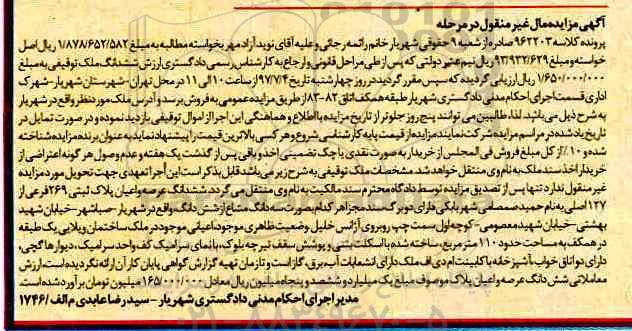 آگهی مزایده مال غیر منقول در مرحله
پرونده کلاسه ۹۶۲۲۰۳ صادره از شعبه ۹ حقوقی شهریار خانم رائمه رجائی وعلیه آقای نوید آزاد مهر بخواسته مطالبه به مبلغ ۱/۸۷۸/۶۵۲/۵۸۲ ریال اصل
خواسته و مبلغ ۹۳/۹۳۲/۶۲۹ ریال نیم عشر دولتی که پس از طی مراحل قانونی وارجاع به کارشناس رسمی دادگستری ارزش ششدانگ ملک توقیفی به مبلغ
۱/۶۵۰/۰۰۰/۰۰۰ ریال ارزیابی گردیده که سپس مقرر گردید در روز چهارشنبه تاریخ ۹۷/۷/۴ از ساعت ۱۰ الی ۱۱ در محل تهران - شهرستان شهریار - شهرک
اداری قسمت اجرای احکام مدنی دادگستری شهریار طبقه همکف اتاق ۸۲-۸۳ از طریق مزایده عمومی به فروش برسد و آدرس ملک مورد نظر واقع در شهریار
به شرح ذیل می باشد. لذا، طالبین می توانند پنج روز جلوتر از تاریخ مزایده با اطلاع و هماهنگی این اجرا از اموال توقیفی بازدید نموده و در صورت تمایل در
تاریخ یاد شده در مراسم مزایده شرکت نمایند. مزایده از قیمت پایه کارشناسی شروع و هر کسی بالاترین قیمت را پیشنهاد نماید به عنوان برنده مزایده شناخته
شده و ۱۰٪ از کل مبلغ فروش فی المجلس از خریدار به صورت نقدی یا چک تضمینی اخذ و باقی پس از گذشت یک هفته و عدم وصول هر گونه اعتراضی از
خریدار اخذ سند ملک به نام وی منتقل خواهد شد. مشخصات ملک توقیفی به شرح زیر می باشد قابل بذکر است این اجرا تعهدی جهت تحویل مورد مزایده
غیر منقول ندارد تنها پس از تصدیق مزایده توسط دادگاه محترم سند مالکیت به نام وی منتقل می گردد. ششدانگ عرصه واعیان پلاک ثبتی ۲۶۹ فرعی از
۱۲۷ اصلی به نام حمید صمصامی شهر بابکی دارای دو برگ سند مجزا هر کدام بصورت سه دانگ مشاع از شش دانگ واقع در شهریار - صباشهر - خیابان شهید
بهشتی - خیابان شهید معصومی - کوچه اول سمت چپ روبروی آژانس خلیل وضعیت ظاهری موجود، اعیانی موجود در ملک ساختمان ویلایی یک طبقه
در همکف به مساحت حدود ۱۱۰ متر مربع، ساخته شده با اسکلت بتنی و پوشش سقف تیرچه بلوک، با نمای سرامیک کف واحد سرامیک، دیوارها گچی،
دارای دو اتاق خواب، آشپزخانه با کابینت ام دی اف ملک دارای انشعابات آب، برق، گاز است و تا زمان تهیه گزارش گواهی پایان کار آن ارائه نگردیده است. ارزش
معاملاتی شش دانگ عرصه واعیان پلاک موصوف مبلغ یک میلیارد و ششصد و پنجاه میلیون ریال معادل ۱۶۵/۰۰۰/۰۰۰ میلیون تومان برآورد شده است.
مدیر اجرای احکام مدنی دادگستری شهریار - سید رضا عابدی م الف / ۱۷۴۶